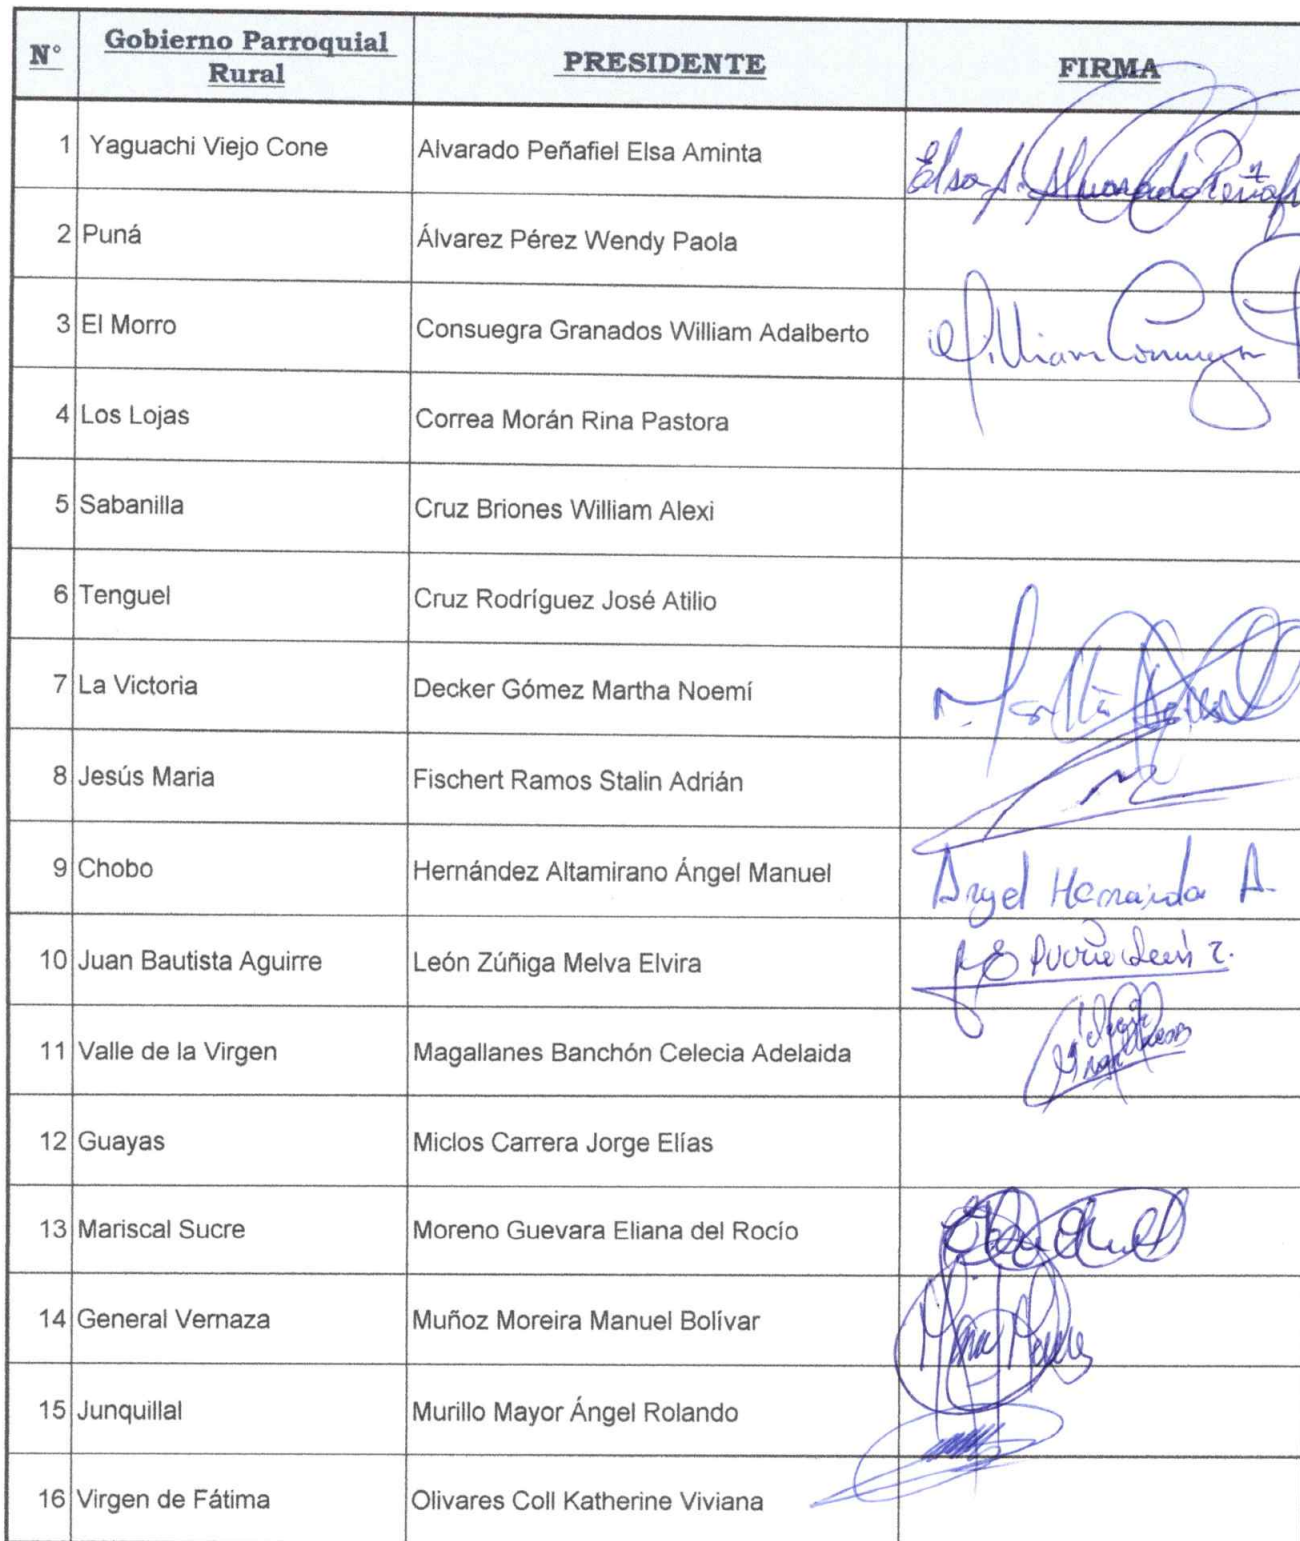 N° Gobierno Parroquial Rural PRESIDENTE FIRMA
1 Yaguachi Viejo Cone Alvarado Peñafiel Elsa Aminta Elsa A. Alvarado
2 Puná Álvarez Pérez Wendy Paola
3 El Morro Consuegra Granados William Adalberto William
4 Los Lojas Correa Morán Rina Pastora
5 Sabanilla Cruz Briones William Alexi
6 Tenguel Cruz Rodríguez José Atilio
7 La Victoria Decker Gómez Martha Noemí
8 Jesús Maria Fischert Ramos Stalin Adrián
9 Chobo Hernández Altamirano Ángel Manuel Angel A.
10 Juan Bautista Aguirre León Zúñiga Melva Elvira
11 Valle de la Virgen Magallanes Banchón Celecia Adelaida
12 Guayas Miclos Carrera Jorge Elías
13 Mariscal Sucre Moreno Guevara Eliana del Rocío
14 General Vernaza Muñoz Moreira Manuel Bolívar
15 Junquillal Murillo Mayor Ángel Rolando
16 Virgen de Fátima Olivares Coll Katherine Viviana